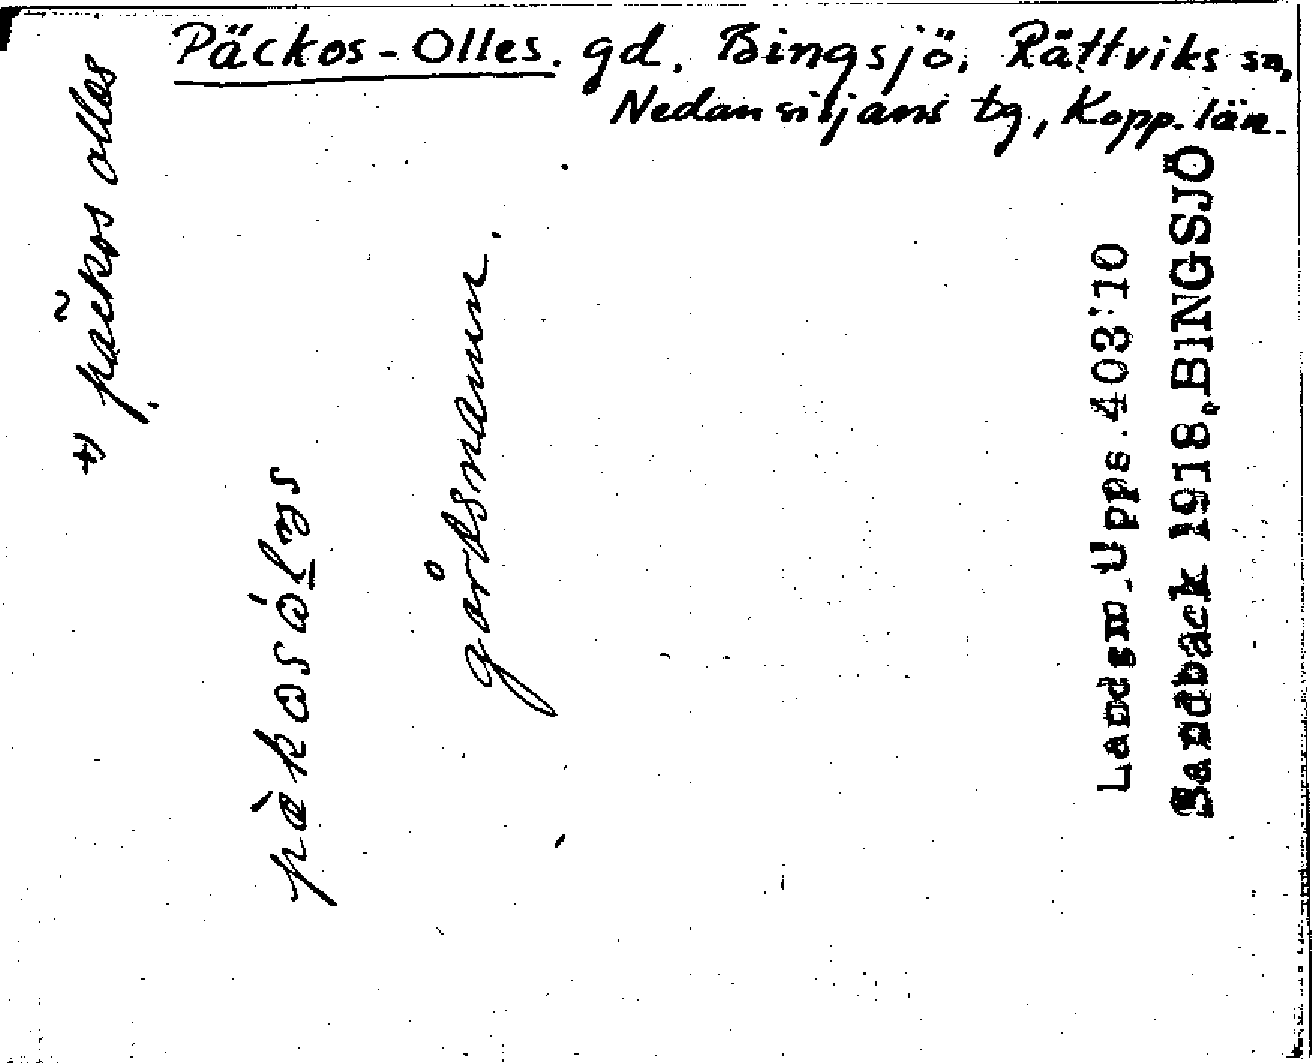 Päckos-Olles. gd, Bingsjö, Rättviks sn,
Nedansiljans tg, Kopp. län.
+) päckos olles
gårdsnamn.
Landsm. Upps. 403:10
Sandbäck 1918, BINGSJÖ